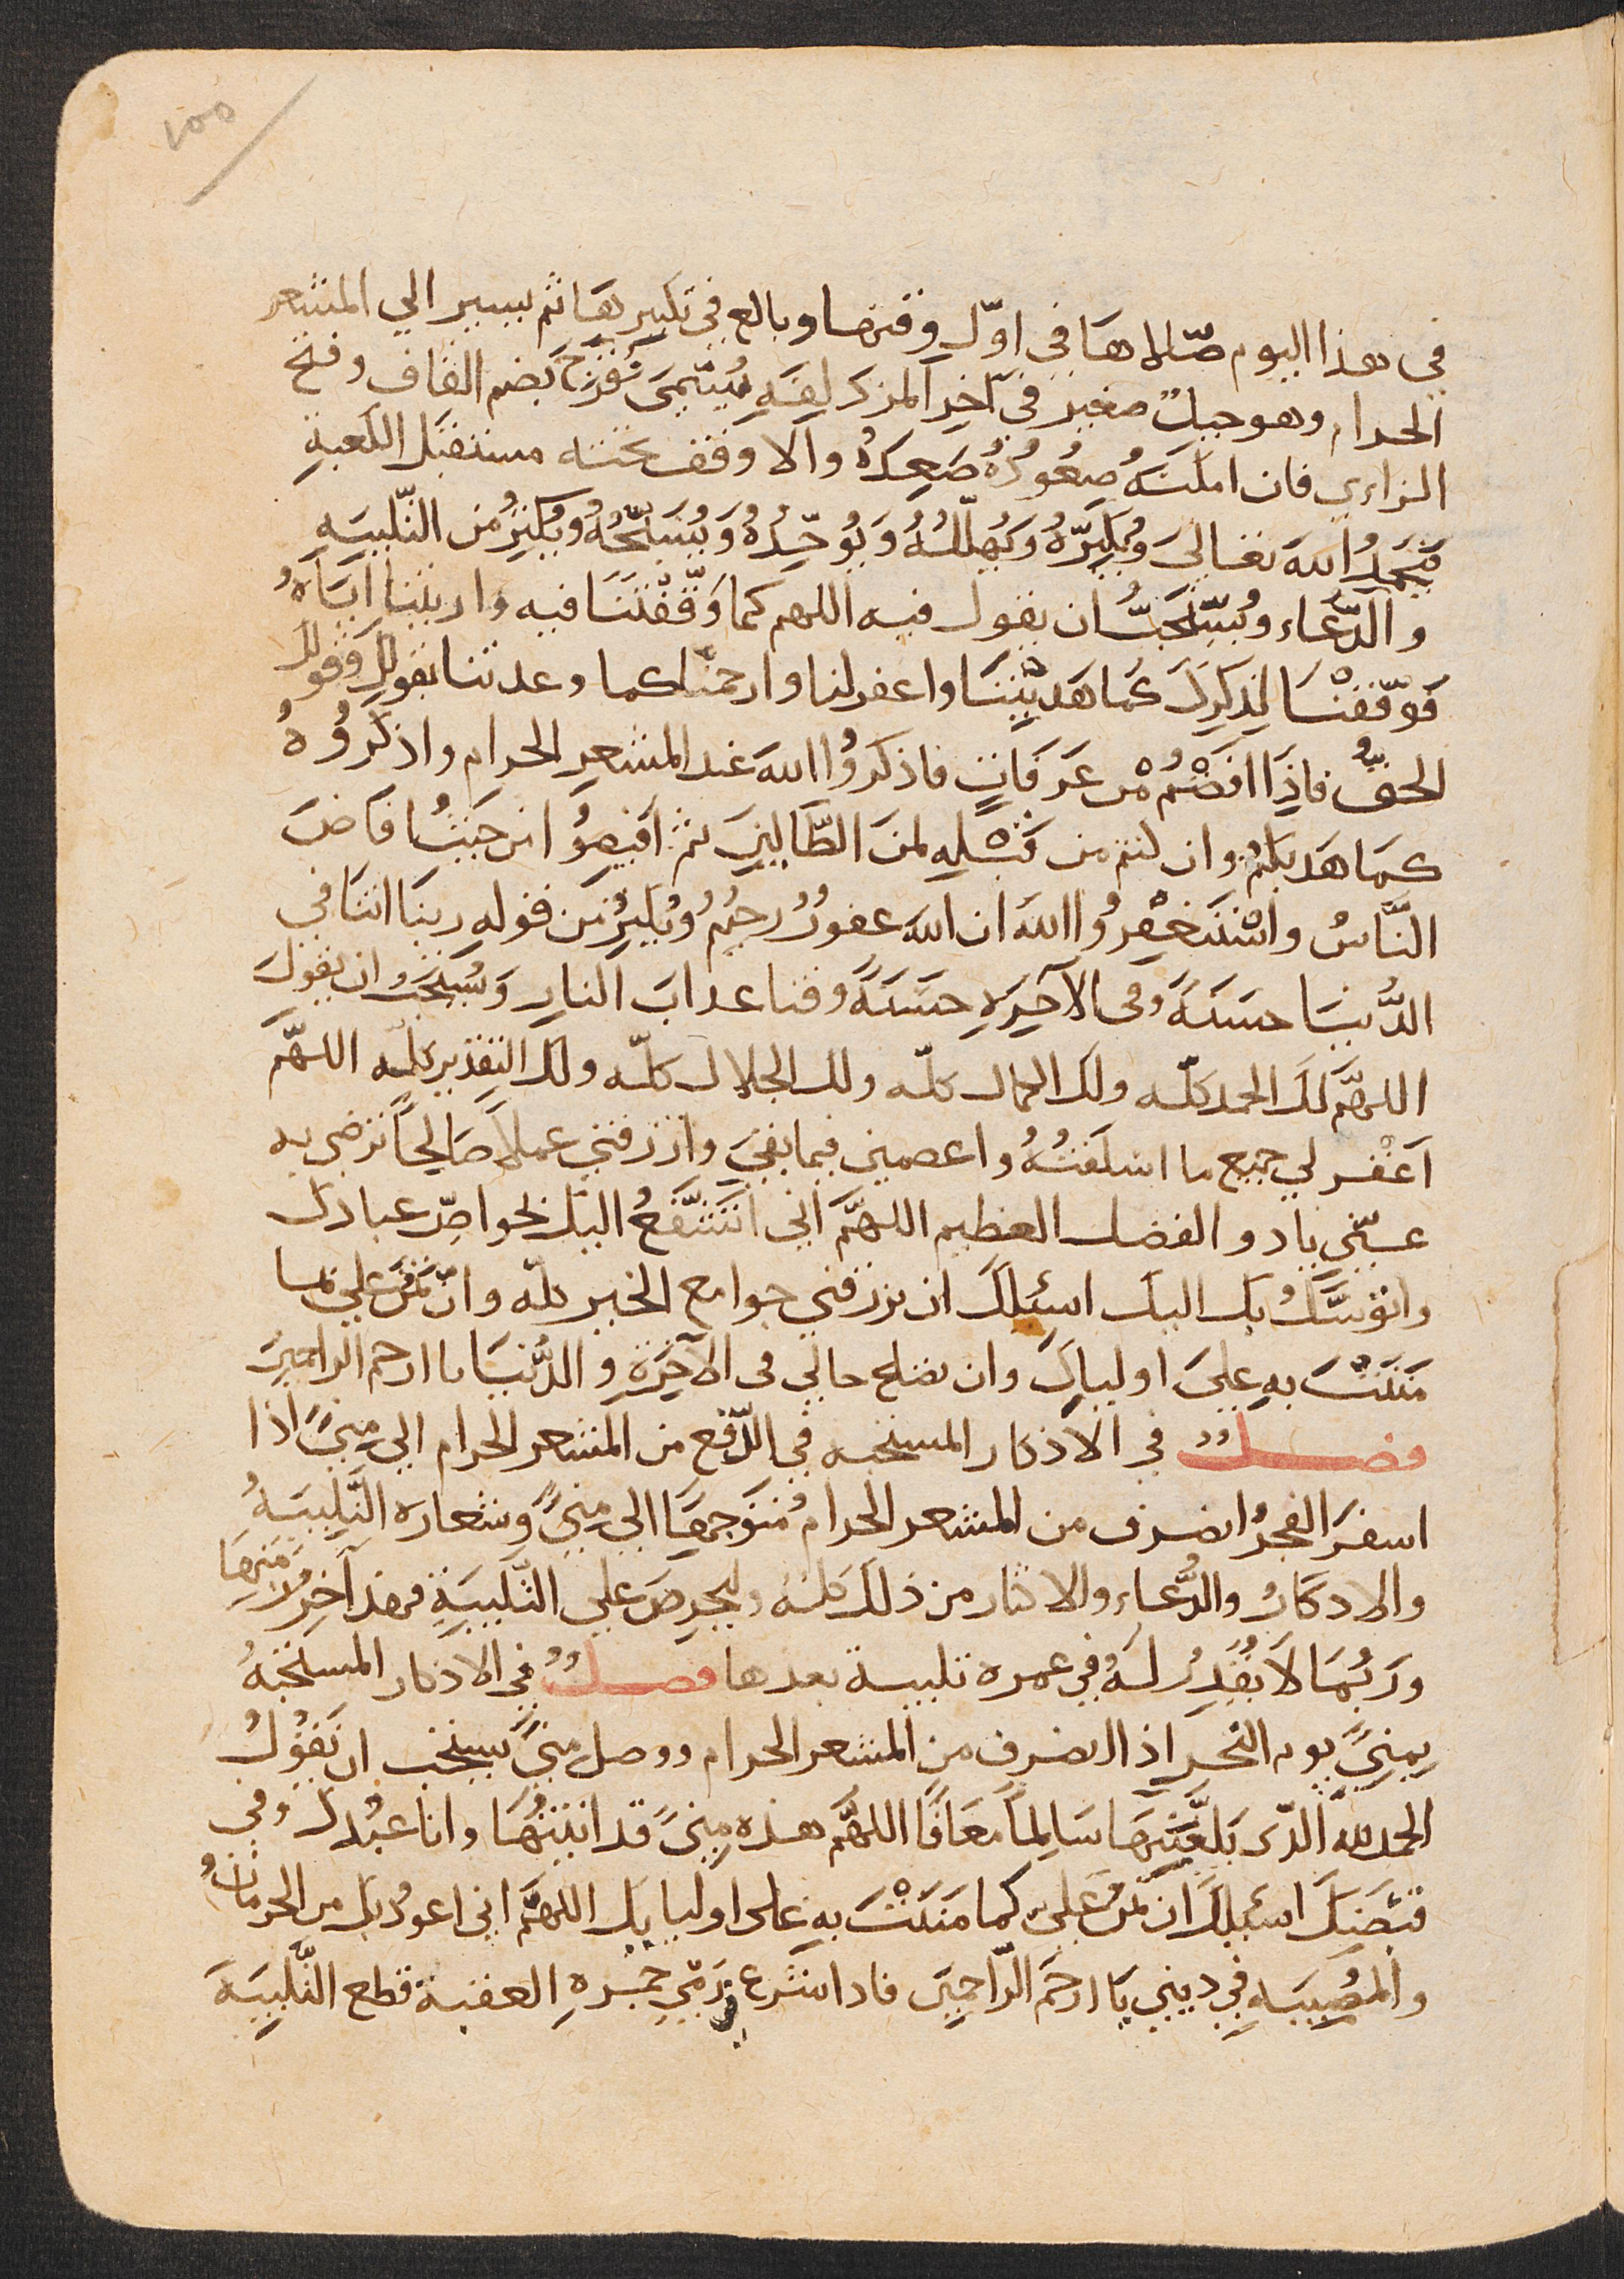 في هذا اليوم صلاها في اوّل وقتها وبالغ في تكبيرها ثم يسير الي المشعر
الحرام وهو جبلٌ صغير في آخر المزدلفة يُسَمّى قُزَحَ بضم القاف وفتح
الزاءي فان امكنهُ صعُودُهُ صَعِدَهُ والا وقف تحته مستقبل الكعبةِ
فيَحمدُ اللهَ تعالىَ وُيكَبِّرهُ وَيُهلّلهُ وَيُوحّدُهُ وَيُسَبِّحُهُ ويُكثِرُ من التّلبيَهِ
والدُّعَاء ويُسْتَحَبُّ ان يقول فيه اللهم كما وَقّفْتَنَا فيه واريتنا ايَّاهُ
فَوَفّقنَا لِذِكرِكَ كَما هَدَيْتَنَا واغفر لنا وارحمنا كما وعدتنا بقولكِ وَقولك
الحقُّ فاذِا افَضْتُمْ من عَرَفَاتٍ فاذكرُوا اللهَ عند المشعرِ الحرام واذكرُوُهُ
كمَا هَديكمْ وان كنتم من قبْلِهِ لمنَ الضَّالينَ ثم افيضُوُا من حَيثُ افَاضَ
النَّاسُ واسْتَغفِرُوا اللهَ ان الله غفورٌ رحيمٌ ويُكثِرُ من قوله ربنَا اتنَا في
الدُّنيَا حسَنَةً وفى الآخِرَةِ حسَنَةً وقنا عذابَ النارِ وَيُستَحَبُّ ان يقولَ
اللهمَّ لكَ الحمد كلّه ولك الكمال كلّه ولك الجلال كلّه ولك التقديس كلّه اللهمَّ
اغْفر لي جميع ما اسْلَفتُهُ واعصمني فيما بقيَ وارزقني عملاً صَالِحاً ترضى به
عنّي ياذو الفضل العظيم اللهمَّ اني اتشَفّعُ اليك بخواصِّ عبادك
واتوسَّلُ بك اليك اسئلكَ ان ترزقني جوامع الخير كلّه وانْ تَمُنَّ علي بما
مَنَنْتَ بهِ عليَ اوليايكَ وان تصلح حالي فى الآخِرَةِ والدُّنيَا يا ارحم الراحمينَ
فصــلٌ في الاذكار المستحبه في الدّفع من المشعر الحرام الي منيً اذا
اسفرَ الفجرُ انصرف من المشعر الحرام مُتوَجهًا الى منيً وشعاره التّلبيَهُ
والاذكارُ والدُّعاء والاكثار من ذلك كلهُ وليحرصَ علي التّلبيَةِ فهذا آخرُ زمنهَا
ورَبُّمَا لاَ يُقَدرُ لهُ في عمره تلبية بعدها فصــلٌ في الاذكار المستحبّهُ
بمِنىً يوم النحرِ اذا انصرف من المشعر الحرام ووصل منىً يستحب ان يَقُوُلُ
الحمد للهَ الّذى بَلّغنيهَا سَالِماً مُعَافًا اللهُمَّ هذه مِنىً قد اتيتُهَا وانا عبْدك وفي
قبْضتِكَ اسئلكَ انْ تمنَّ علىّ كما مَنَنْتَ بهِ على اوليايك اللهمَّ اني اعوذُ بك من الحرمان
والمصُيبَهِ في ديني يَا ارحَمَ الرّاحمينَ فاذا شرع في رَمْي جمرةِ العقبة قطع التَّلبِيَةَ